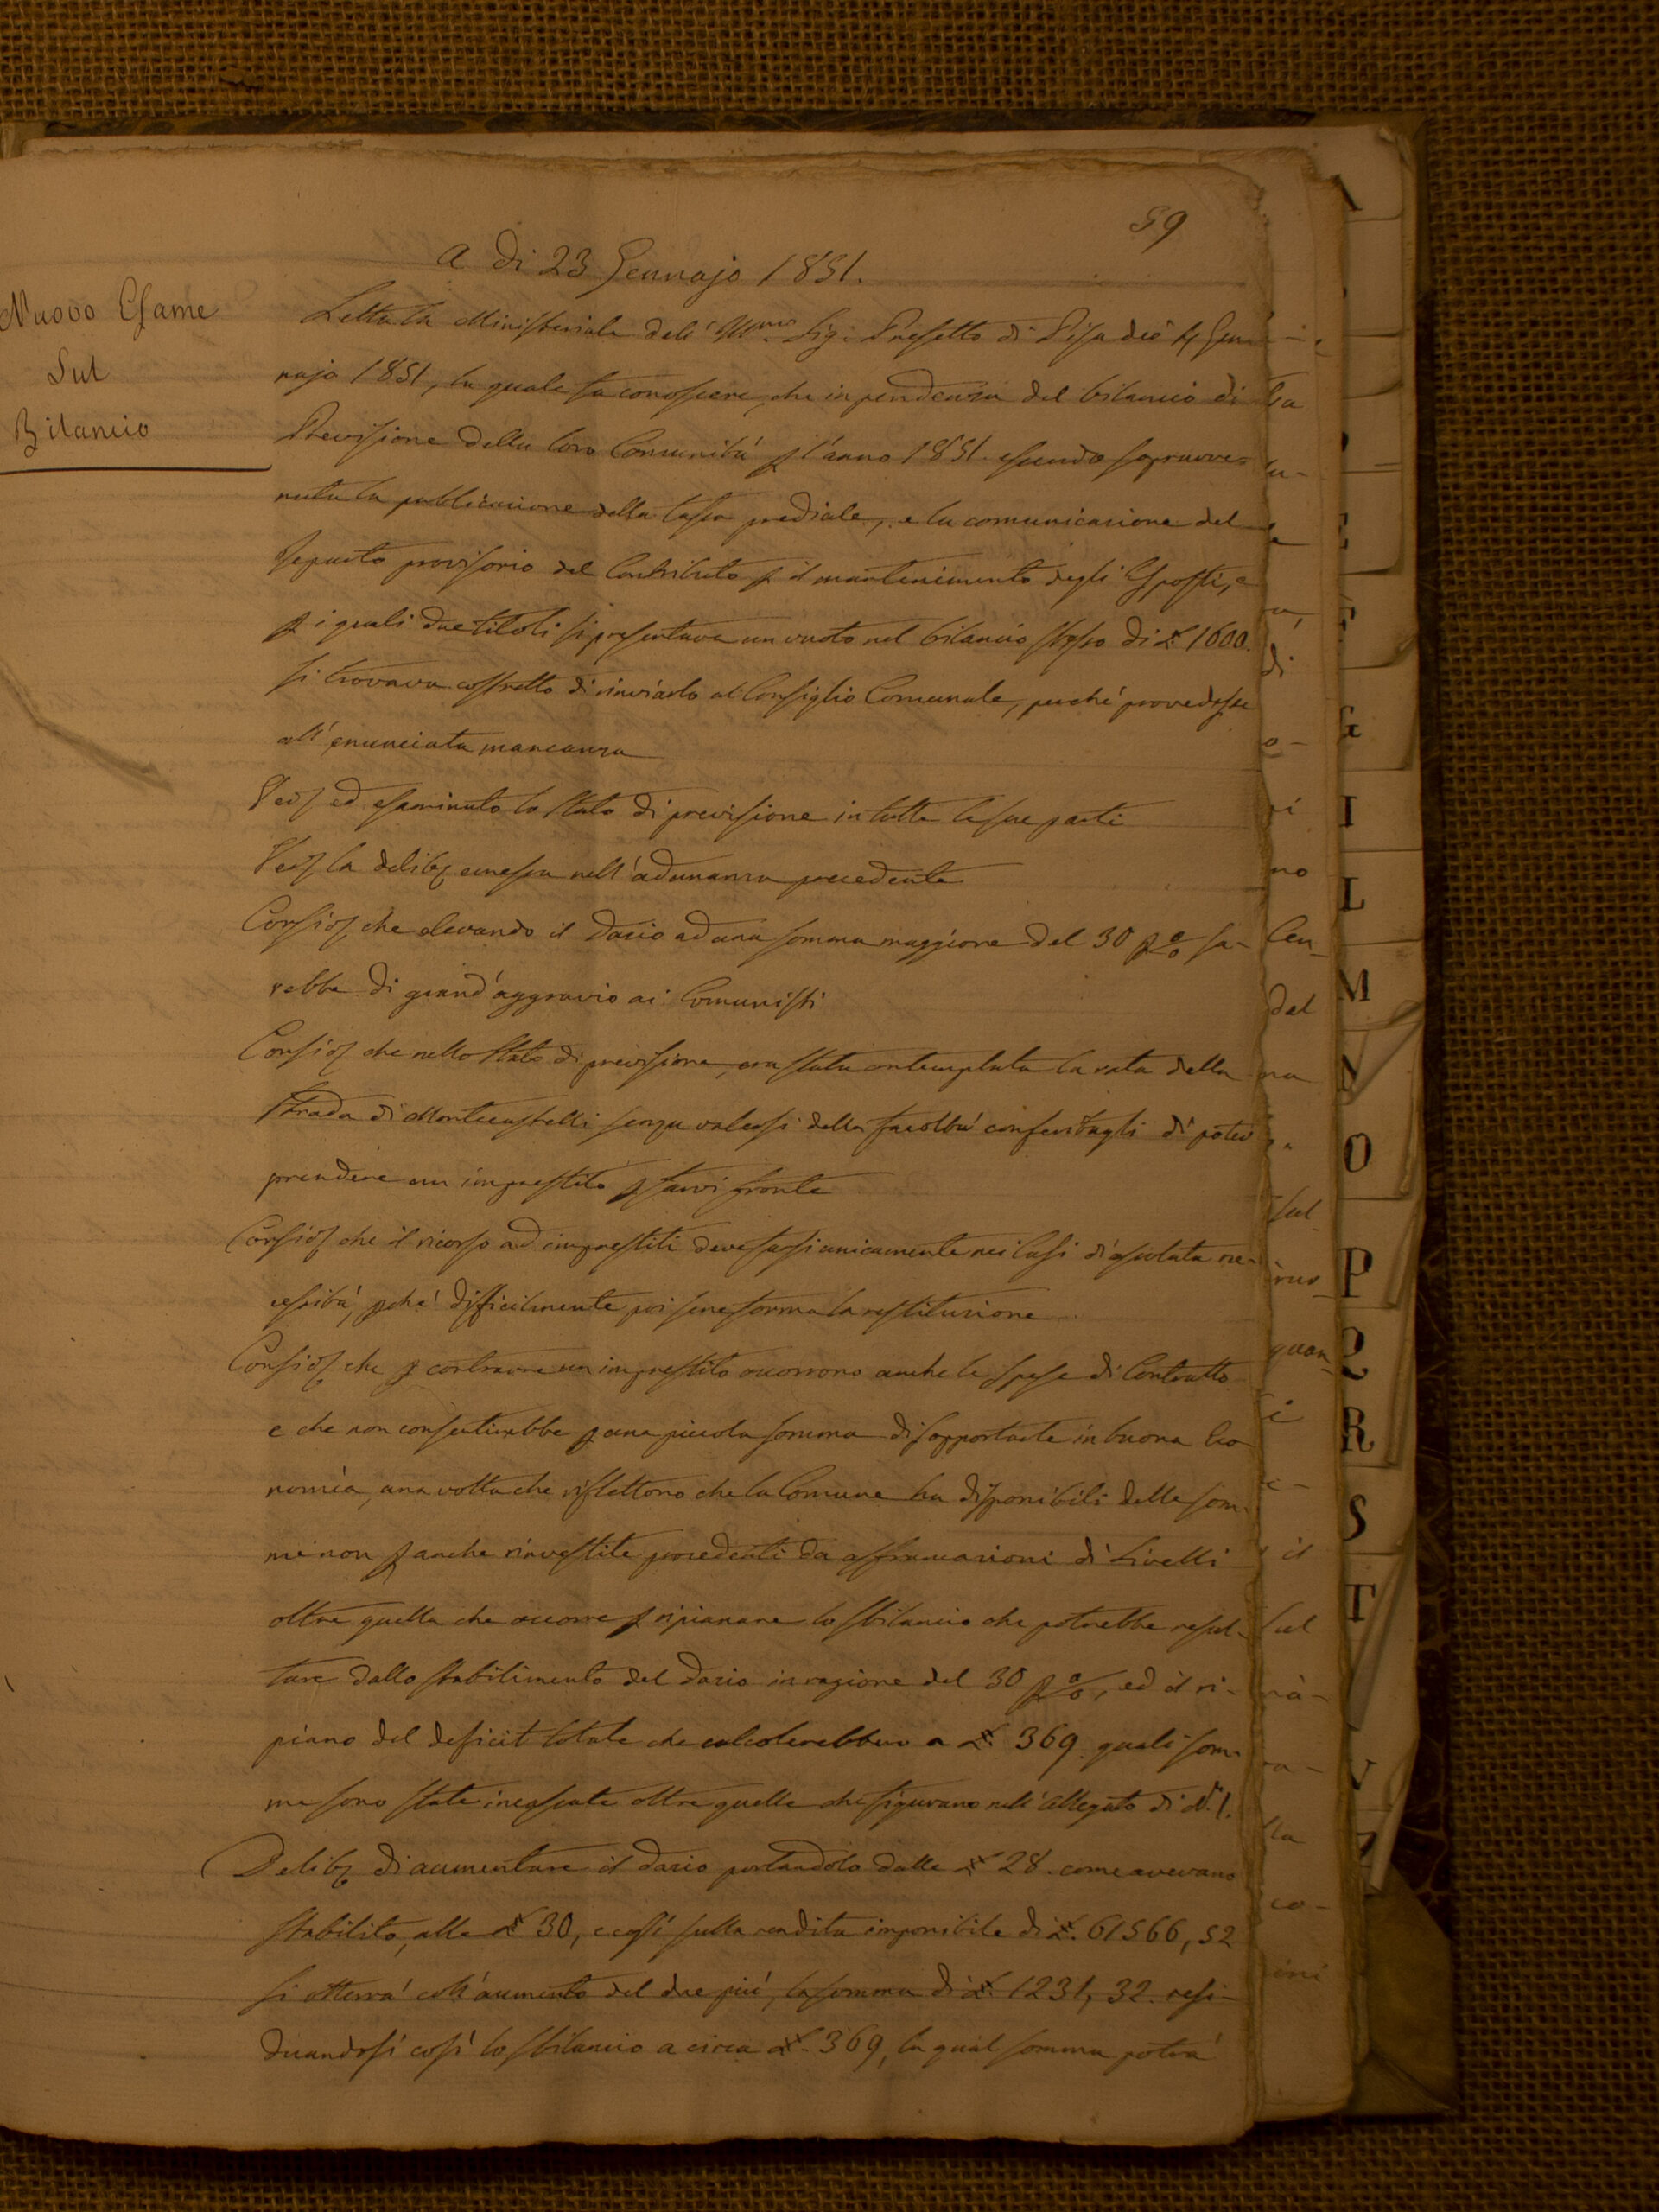 59
A dì 23 Gennajo 1851.
Nuovo Esame
Sul
Bilancio
Letta la Ministeriale dell' Ill.mo Sig: Prefetto di Pisa de' Gen
najo 1851, la quale fa conoscere, che in pendenza del bilancio di
Previsione della loro Comunità p l'anno 1851. essendo sopravve=
nuta la publicazione della tassa prediale, e la comunicazione del
reparto provisorio del Contributo p il mantenimento degli Esposti, e
p i quali due titoli si presentava un vuoto nel bilancio stesso di £ 1600.
si trovava costretto di rinviarlo al Consiglio Comunale, perché provedesse
all' enunciata mancanza
Ved ed esaminato lo Stato di previsione in tutte le sue parti
Ved la delib emessa nell' adunanza precedente
Consid che elevando il Dazio ad una somma maggiore del 30 p % sa-
rebbe di grand' aggravio ai Comunisti
Consid che nello Stato di previsione, era stata contemplata la rata della
strada di Montecastelli senza valersi della facoltà conferitagli di poter
prendere un imprestito p farvi fronte
Consid che il ricorso ad imprestiti deve farsi unicamente nei Casi d'assoluta ne-
cessità, pché difficilmente poi se ne forma la restituzione
Consid che p contrarre un imprestito occorrono anche le spese di Contratto
e che non consentirebbe p una piccola somma di sopportarle in buona Eco
nomia, una volta che riflettono che la Comune ha disponibili delle som-
me non p anche rinvestite procedenti da affrancazioni di Livelli
oltre quella che occorre p ripianare lo sbilancio che potrebbe resul-
tare dallo stabilimento del Dazio in ragione del 30 p %, ed il ri-
piano del deficit totale che calcolerebbero a £ 369. quali som-
me sono state incassate oltre quelle che figurano nell' allegato di N. 1.
Delib di aumentare il dazio portandolo dalle £ 28. come avevano
stabilito, alle £ 30, e così sulla rendita imponibile di £. 61566, 52
si otterrà coll' aumento del due più, la somma di £. 1231, 32. resi-
duandosi così lo sbilancio a circa £. 369, la qual somma potrà
di
no
del
quan-
il
sul
I
L
M
N
O
P
Q
R
S
T
V
Z